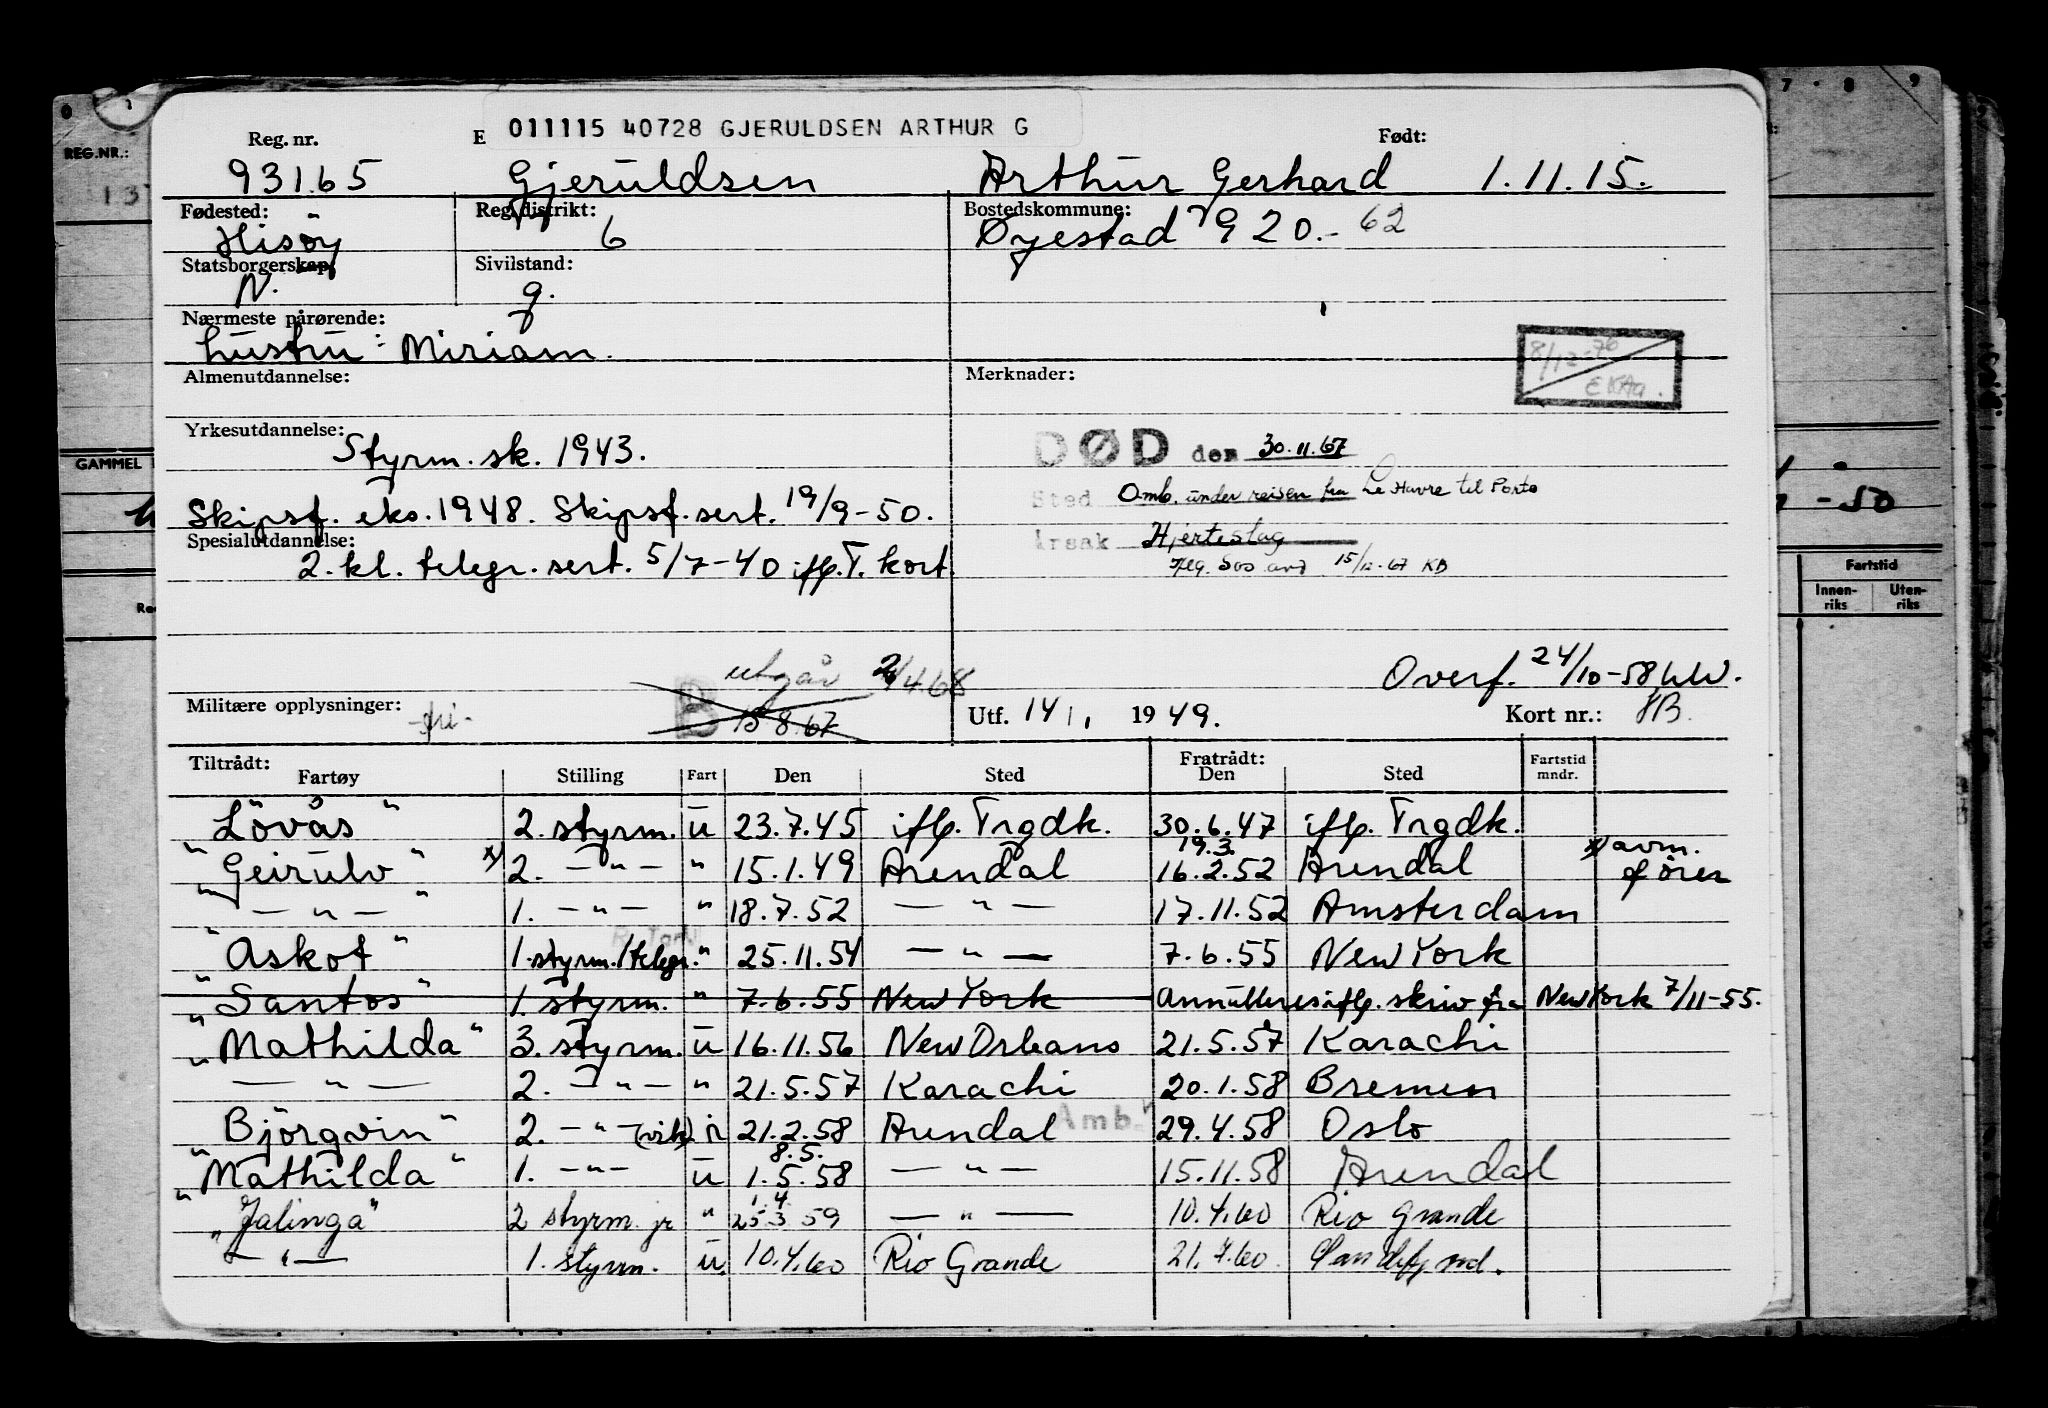 0 7 8 9
REG.NR.:
Reg. nr. E 011115 40728 GJERULDSEN ARTHUR G Født:
93165 Gjeruldsen Arthur Gerhard 1.11.15.
Fødested: Reg.distrikt: Bostedskommune:
Hisöy 6 Øyestad 920.- 62
Statsborgerskap: Sivilstand:
N. g.
Nærmeste pårørende:
hustru: Miriam.
Almenutdannelse: Merknader:
8/12-76
Yrkesutdannelse: Styrm. sk. 1943.
DØD den 30.11.67
Sted Omb. under reisen fra Le Havre til Porto
Skipsf. eks. 1948. Skipsf. sert. 19/9-50.
Årsak Hjerteslag
Spesialutdannelse:
2. kl. telegr. sert. 5/7-40 iflg. T. kort.
15/12-67 KB
utgår 2/4.68
Overf. 24/10-58
Militære opplysninger: -fri- B 15 8.67 Utf. 14/1, 1949. Kort nr.: 1B.
GAMMEL
-50
Fartstid
Innen-riks Uten-riks
Tiltrådt: Fratrådt:
Fartøy Stilling Fart Den Sted Den Sted Fartstid mndr.
"Lövås" 2. styrm. u 23.7.45 iflg. Trgdk. 30.6.47 iflg. Trgdk.
19.3. x) avm.
"Geirulv" x) 2. — " — " 15.1.49 Arendal 16.2.52 Arendal fører
" — " — " 1. — " — " 18.7.52 — " — 17.11.52 Amsterdam
"Askot" 1.styrm./telegr. " 25.11.54 — " — 7.6.55 New York
"Santos" 1. styrm. " 7.6.55 New York Annulleres iflg. skriv fra New York 7/11-55.
"Mathilda" 3. styrm. u 16.11.56 New Orleans 21.5.57 Karachi
— " — 2. — " — " 21.5.57 Karachi 20.1.58 Bremen
Amb.
"Björgvin" 2. — " — (vik) i 21.2.58 Arendal 29.4.58 Oslo
8.5.
"Mathilda" 1. — " — u 1.5.58 — " — 15.11.58 Arendal
1.4
"Jalinga" 2 styrm. jr " 25.3 59 — " — 10.4.60 Rio Grande
— " — 1. styrm. u. 10.4.60 Rio Grande 21.7.60 Sandefjord.